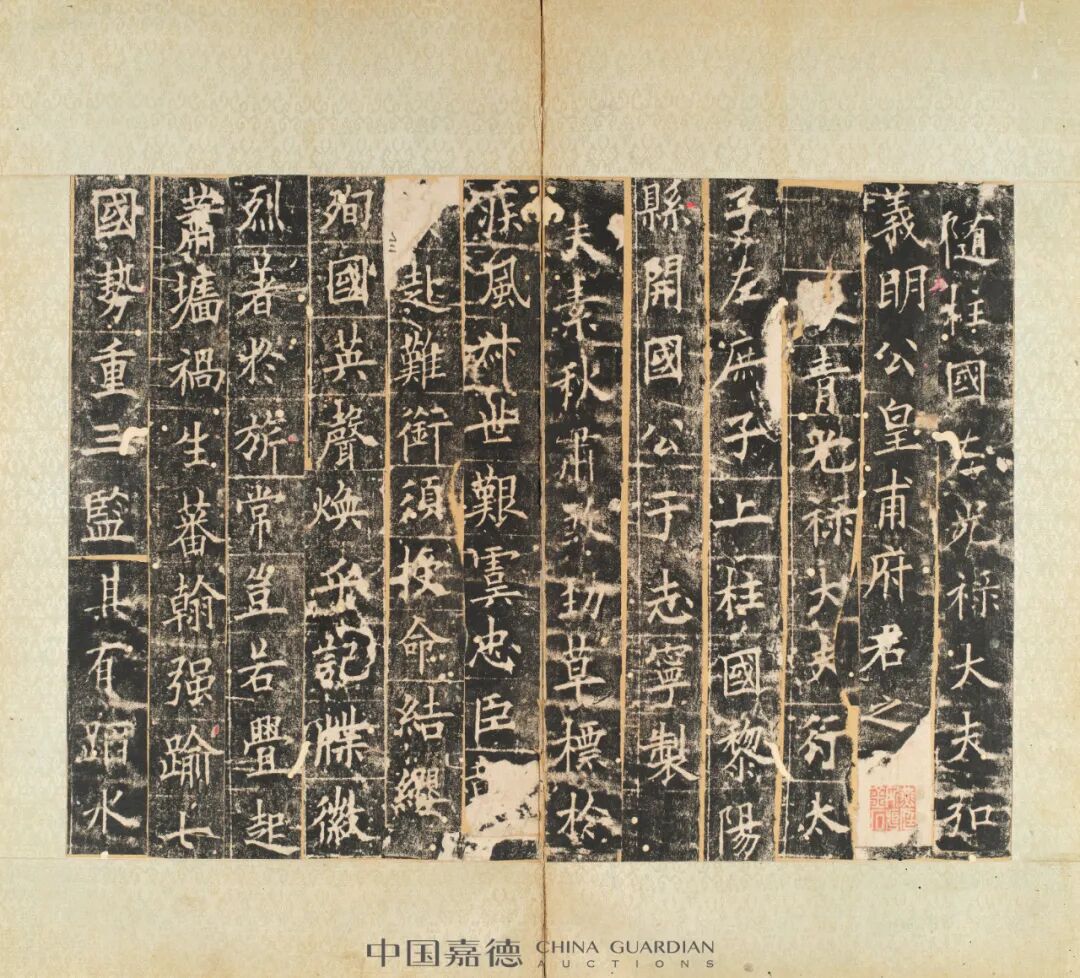 随柱國左光祿大夫弘
義明公皇甫府君之
青光祿大夫行太
子左庶子上柱國黎陽
縣開國公于志寧製
夫素秋肅煞勁草標於
疾風叔世艱虞忠臣
赴難銜須授命結纓
殉國英聲煥乎記牒徽
烈著於旂常豈若舋起
蕭墻禍生蕃翰强踰七
國勢重三監其有蹈水
中国嘉德 CHINA GUARDIAN
AUCTIONS